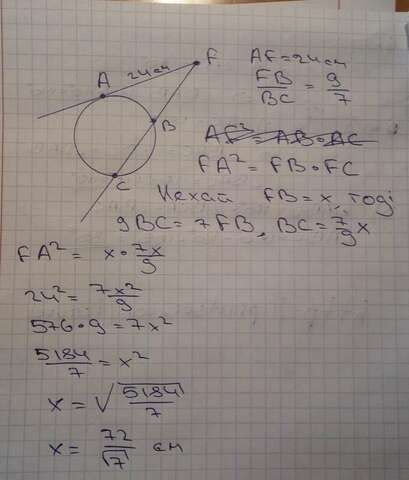 F
A 24см
B
C
AF=24см
FB/BC = 9/7
AF² = AB•AC
FA² = FB•FC
Нехай FB=x, тоді
9BC = 7FB, BC = 7/9 x
FA² = x • 7x/9
24² = 7x²/9
576•9 = 7x²
5184/7 = x²
x = √5184/7
x = 72/√7 см